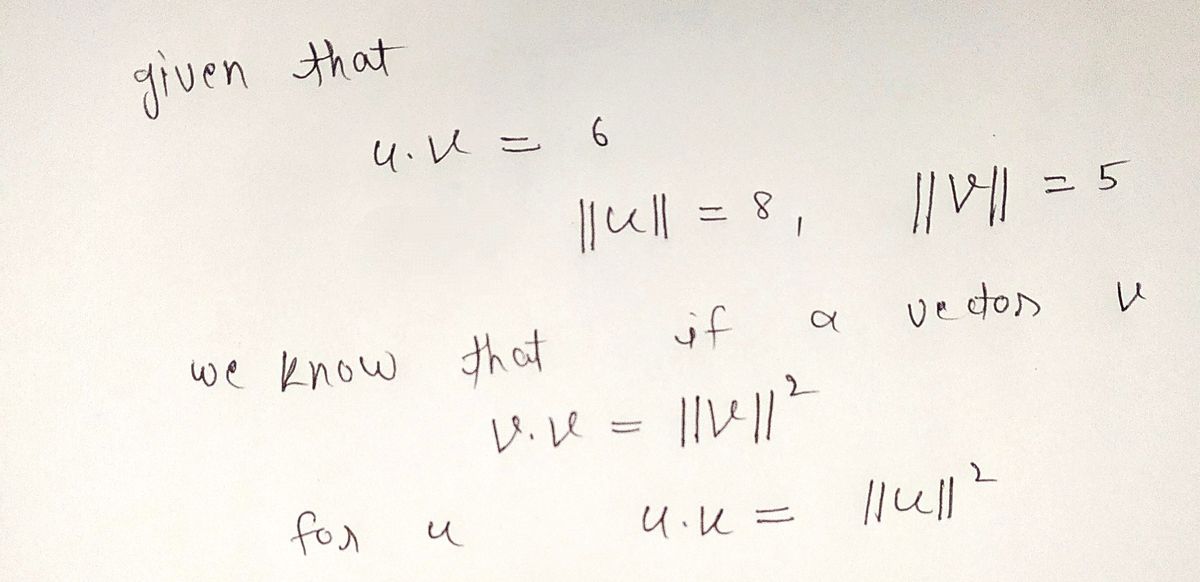 given that
u.v = 6
||u|| = 8, ||v|| = 5
we know that if a vector v
v.v = ||v||²
for u u.u = ||u||²